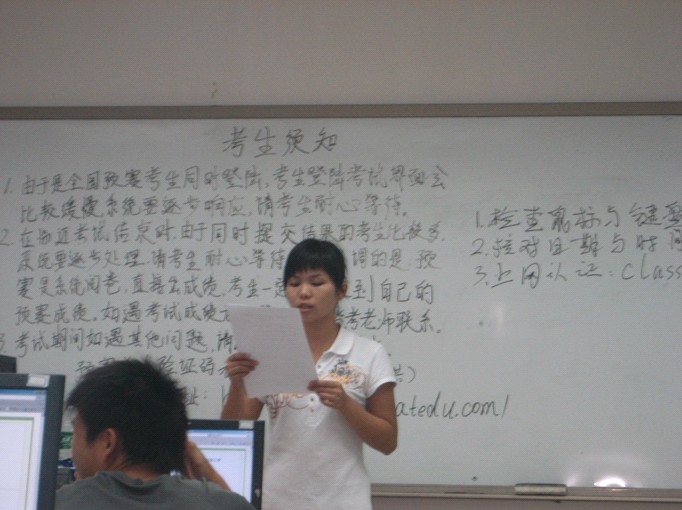 考生须知
1. 由于是全国预赛考生同时登陆,考生登陆考试界面会
比较缓慢,系统要逐步响应,请考生耐心等待。
2. 在临近考试结束时,由于同时提交结果的考生比较多,
系统要逐步处理,请考生耐心等待 调的是:预
赛是系统阅卷,直接出成绩,考生一定 到自己的
预赛成绩。如遇考试成绩 监考老师联系。
3 考试期间如遇其他问题,请
预赛 验证码
址: atedu.com/
1. 检查鼠标与键盘
2. 核对日期与时间
3. 上网认证: class